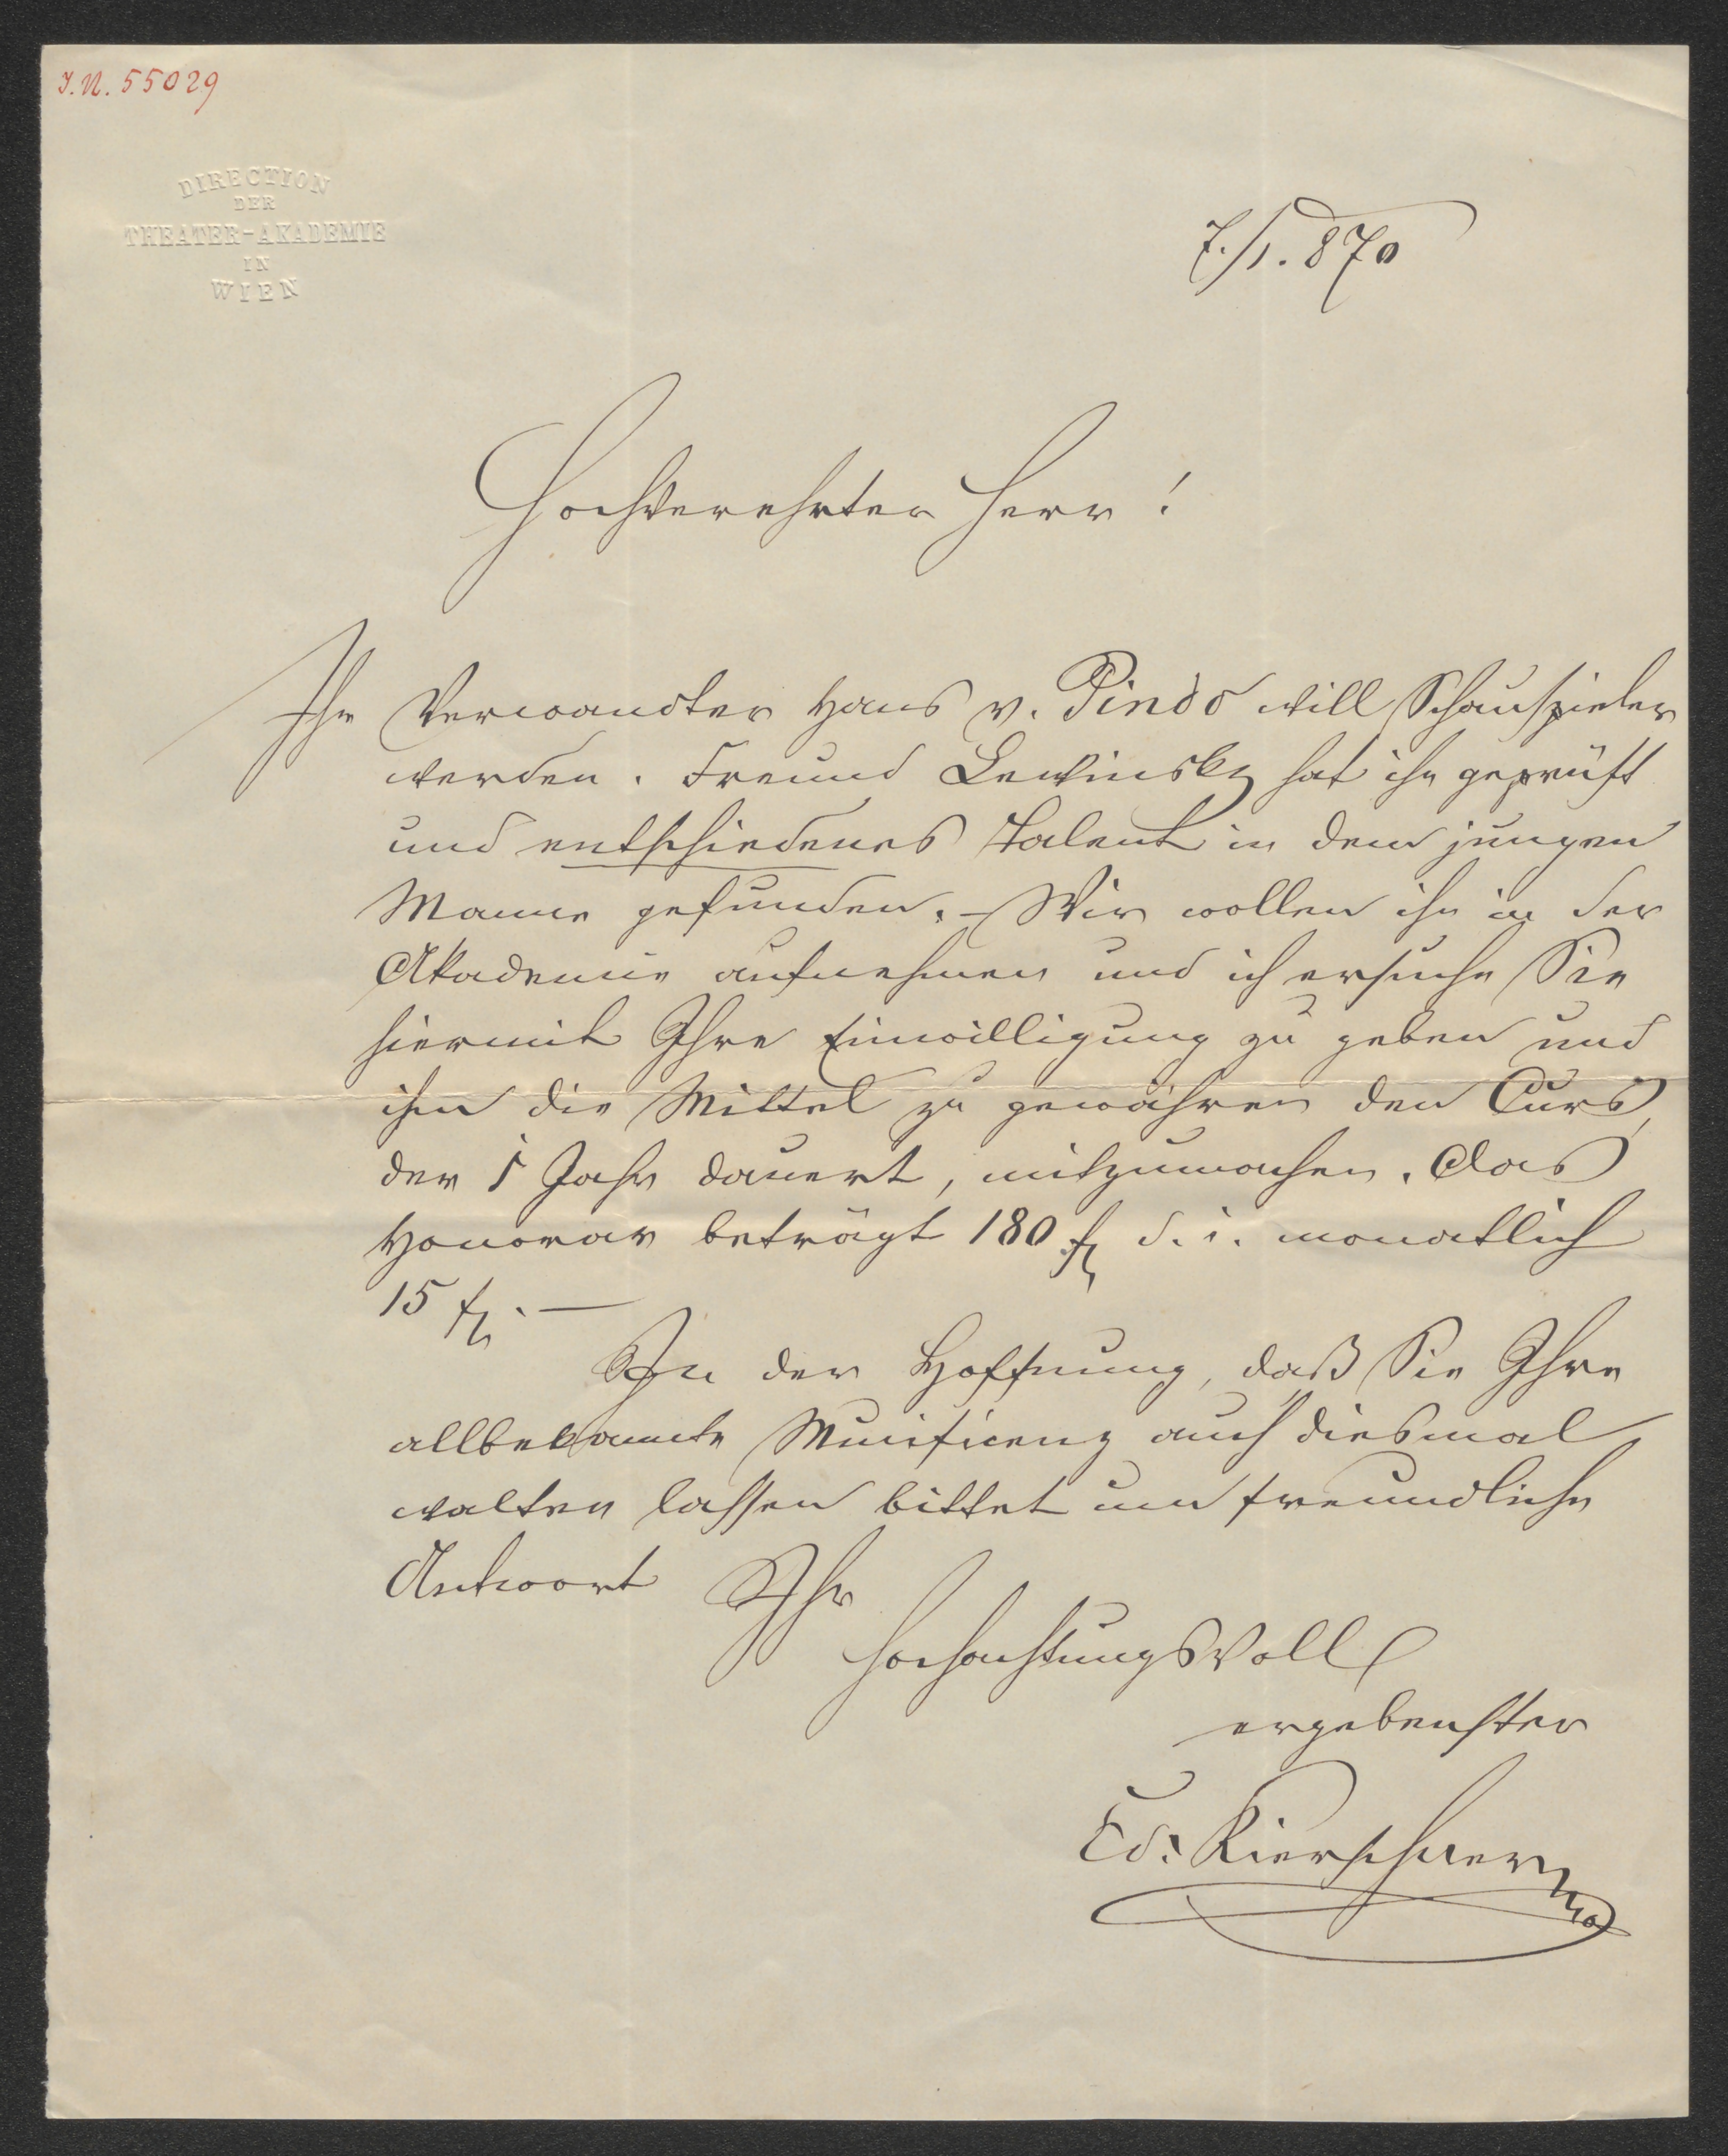 J.N. 55029
DIRECTION
DER
THEATER-AKADEMIE
IN
WIEN
7./1. 870
Hochverehrter Herr!
Ihr Verwandter Hans v. Pindo will Schauspieler
werden. Freund Lewinsky hat ihn geprüft
und entschiedenes Talent in dem jungen
Manne gefunden. – Wir wollen ihn in der
Akademie aufnehmen und ich ersuche Sie
hiermit Ihre Einwilligung zu geben und
ihm die Mittel zu gewähren den Curs,
der 1 Jahr dauert, mitzumachen. Das
Honorar beträgt 180 fl d. i. monatlich
15 fl. —
In der Hoffnung, daß Sie Ihre
allbekannte Munificenz auch diesmal
walten lassen bittet um freundliche
Antwort Ihr
hochachtungsvoll
ergebenster
Ed. Kierschner